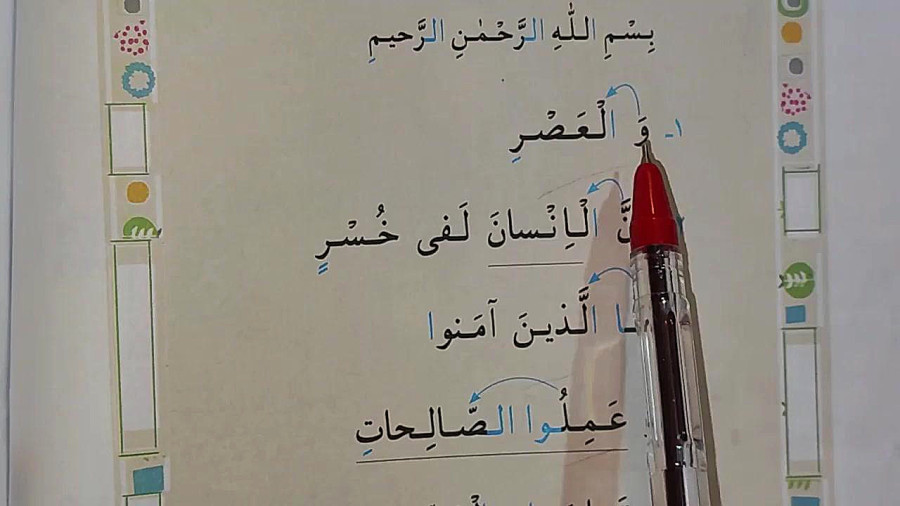 بِسْمِ اللّٰهِ الرَّحْمٰنِ الرَّحیمِ
۱- وَ الْعَصْرِ
الْاِنْسانَ لَفی خُسْرٍ
الَّذینَ آمَنوا
عَمِلُوا الصّالِحاتِ